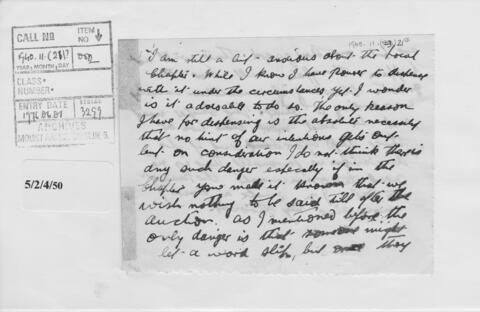 CALL NO
ITEM NO
1940.11.(28)?
DSP
YEAR, MONTH, DAY
CLASS.
NUMBER.
ENTRY DATE
SERIAL
3259
ARCHIVES
MOUNT
DUBLIN, 8.
5/2/4/50
1940.11.(28) 2
I am still a bit anxious about the Local
Chapter. While I know I have power to dispense
with it under the circumstances yet I wonder
is it advisable to do so. The only reason
I have for dispensing is the absolute necessity
that no hint of our intentions gets out
but on consideration I do not think there is
any such danger especially if in the
Chapter you make it known that we
wish nothing to be said till after the
Auction. As I mentioned before the
only danger is that someone might
let a word slip, but they